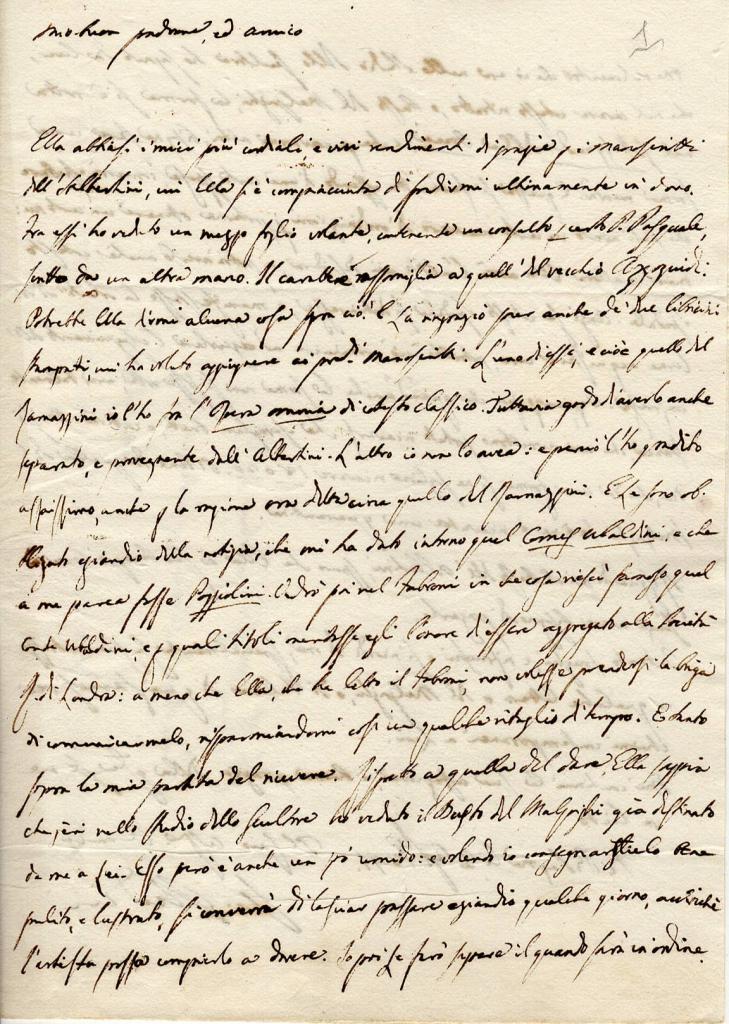 1
mio buon padrone, ed amico
Ella abbiasi i miei più cordiali e vivi rendimenti di grazie p. i manoscritti
dell'Albertini, cui Ella si è compiaciuta di spedirmi ultimamente in dono.
Fra essi ho veduto un mezzo foglio volante, contenente un consulto p certo P. Pasquale,
scritto da un altra mano. Il carattere rassomiglia a quell' del vecchio Azzoguidi.
Potrebbe Ella dirmi alcuna cosa sopra ciò? E La ringrazio pur anche de' due libricini
stampati, cui ha voluto aggiugnere ai pred.i manoscritti. L'uno di essi, e cioè quello del
Ramazzini io l'ho fra l'Opera omnia di cotesto classico. Tuttavia godo d'averlo anche
separato, e proveniente dall'Albertini. L'altro io non lo avea: e perciò l'ho gradito
assaissimo, anche p la ragione ora detta circa quello del Ramazzini. E Le sono ob-
bligato eziandio della notizia, che mi ha dato intorno quel Comes Ubaldini, e che
a me parea fosse Pozziolini. Vedrò poi nel Fabroni in che cosa riescì famoso quel
Conte Ubaldini, e p quali titoli meritasse egli l'onore d'essere aggregato alla Società
R. di Londra: a meno che Ella, che ha letto il Fabroni, non volesse prendersi la briga
di comunicarmelo, risparmiandomi così un qualche ritaglio di tempo. E tanto
sopra la mia partita del ricevere. Rispetto a quella del dare, Ella sappia
che jeri nello studio dello scultore ho veduto il Busto del Malpighi già destinato
da me a Lei. Esso però è anche un pò umido: e volendo io consegnarglielo bene
pulito, e lustrato, si converrà di lasciar passare eziandio qualche giorno, acciocchè
l'artista possa compierlo a dovere. Io poi Le farò sapere il quando sarà in ordine.